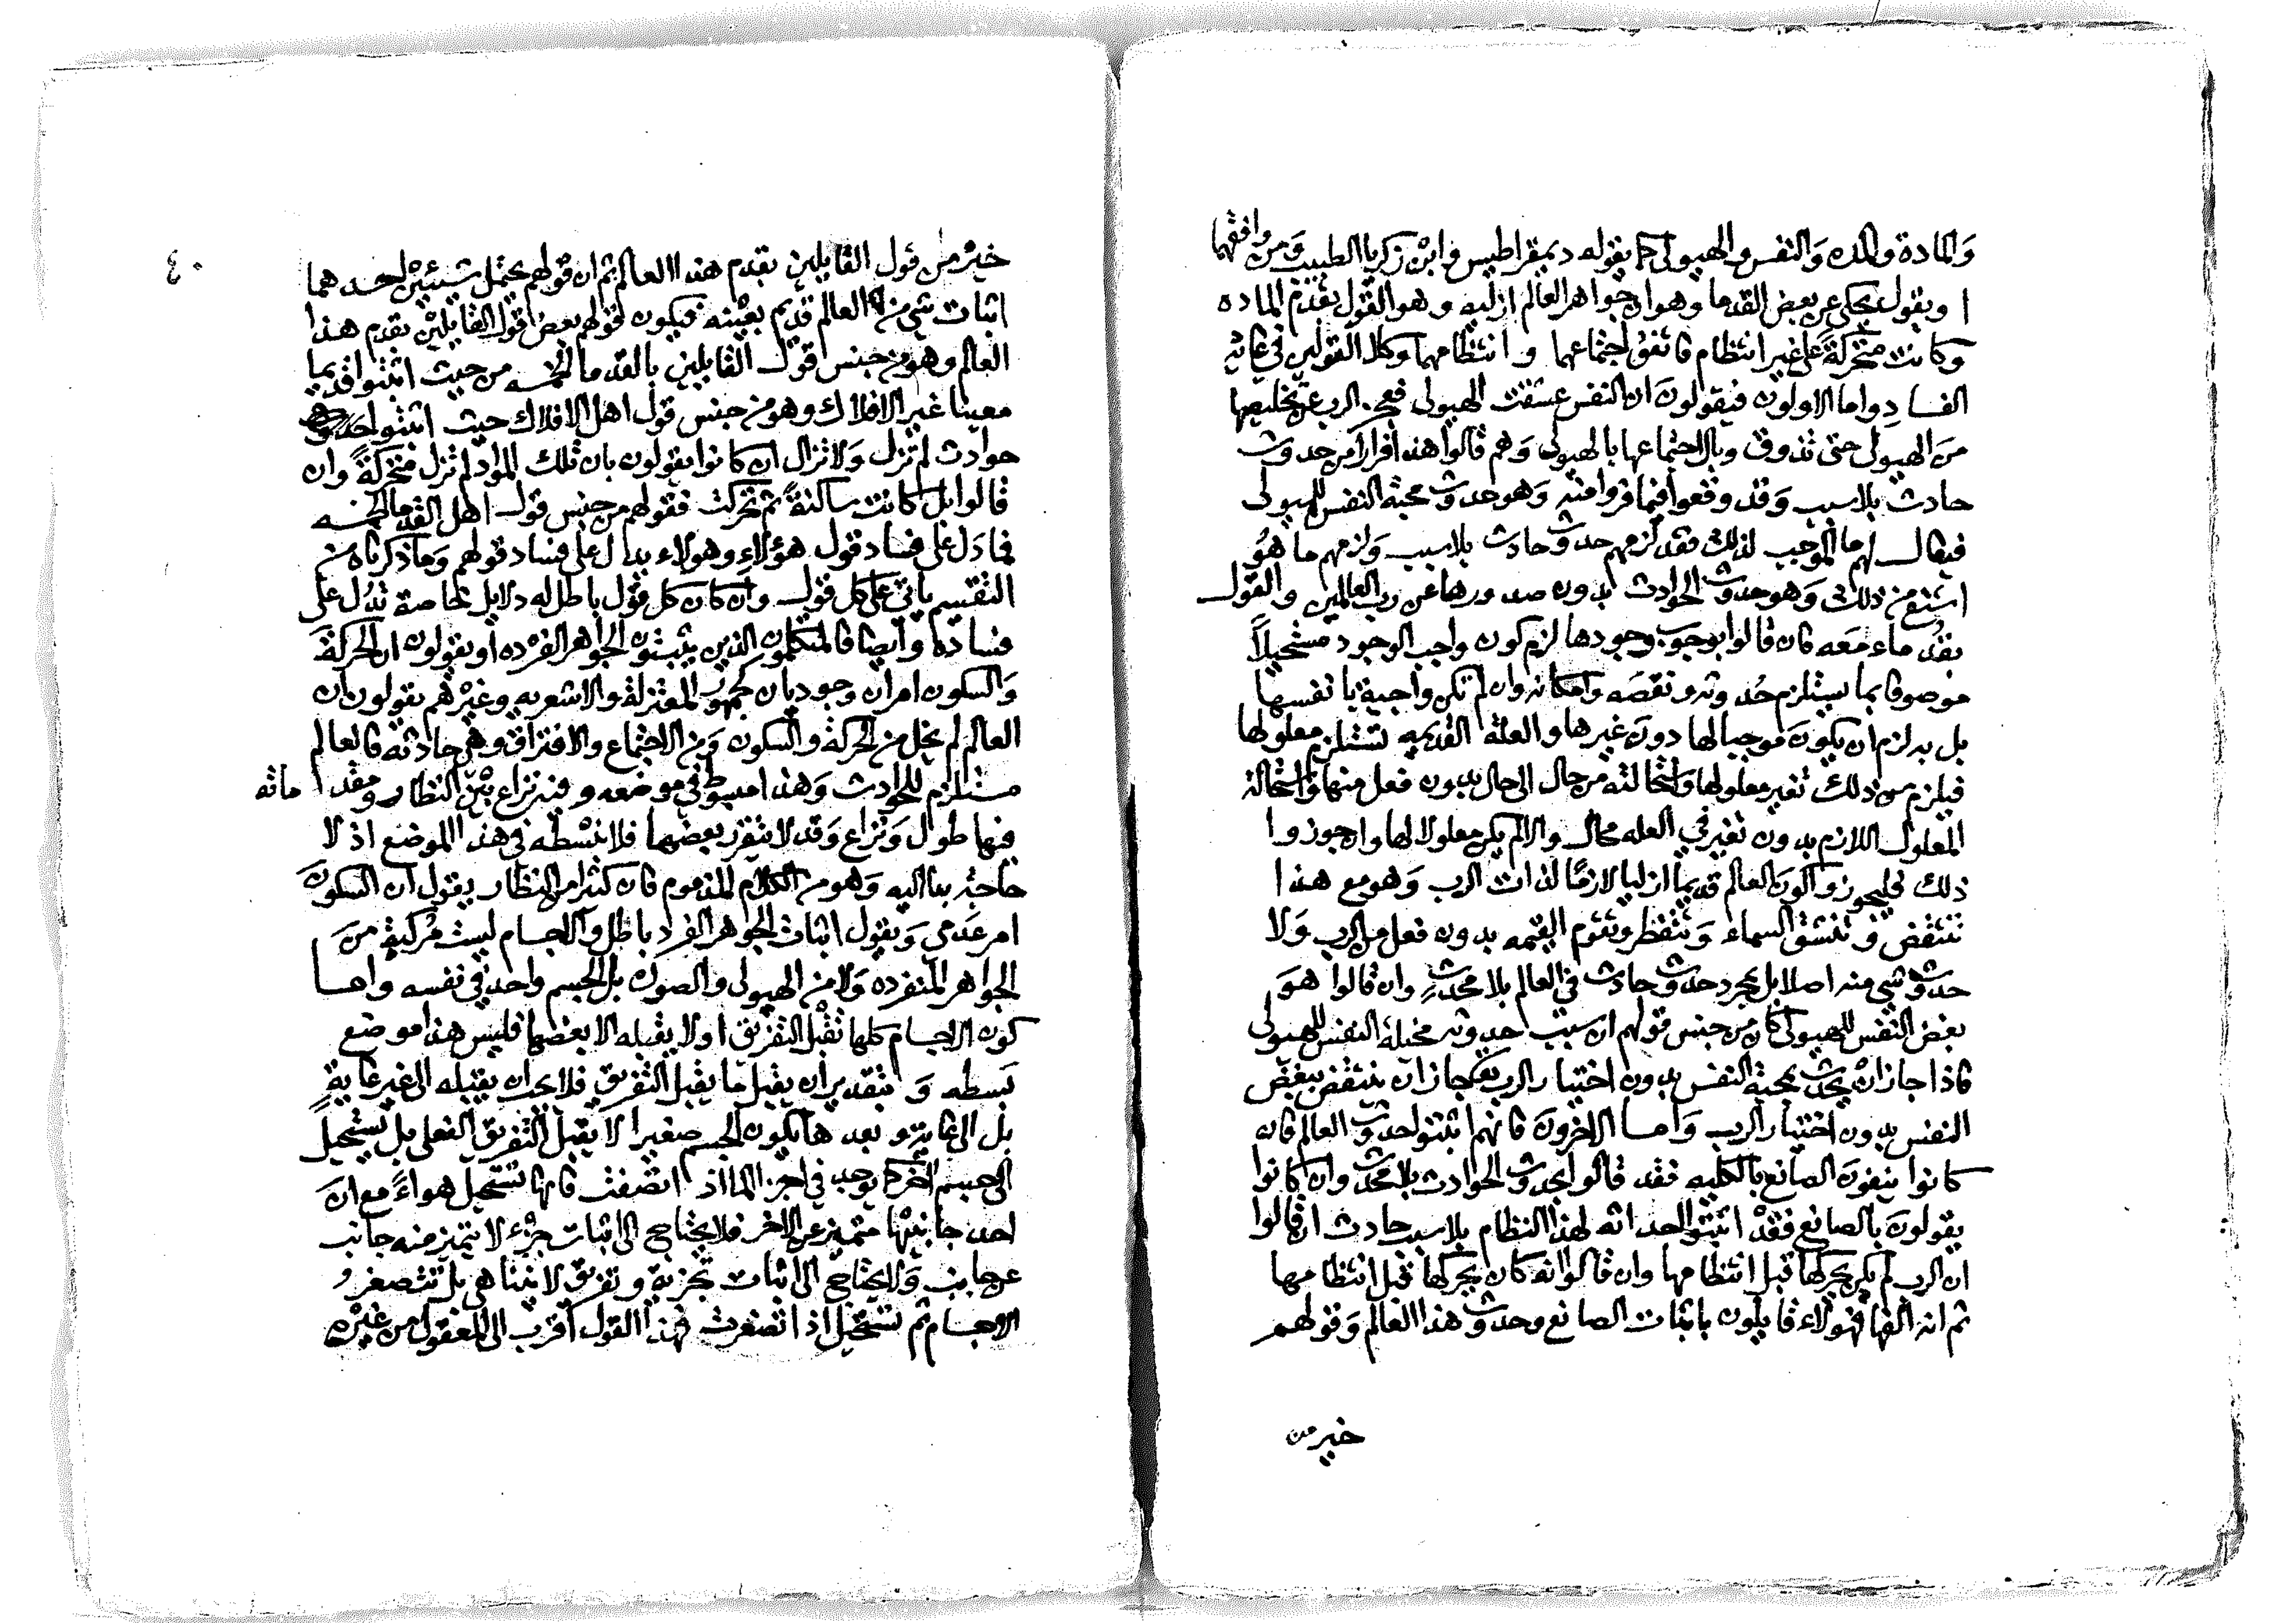 والمادة والمده والنفس والهيولى كما يقوله ديمقراطيس وابن زكريا الطبيب ومن وافقهما
او يقول يحكى عن بعض القدما وهو ان جواهر العالم ازليه وهو القول بقدم الماده
وكانت متحركة على غير انتظام فاتفق اجتماعها وانتظامها وكلا القولين في غاية
الفساد واما الاولون فيقولون ان النفس عشقت الهيولى فعجز الرب عن تخليصها
من الهيولى حتى تذوق وبال اجتماعها بالهيولى وهم قالوا هذا فرارا من حدوث
حادث بلا سبب وقد وقعوا فيما فروا منه وهو حدوث محبة النفس للهيولى
فيقال لهم ما الموجب لذلك فقد لزمهم حدوث حادث بلا سبب ولزمهم ما هو
اشنع من ذلك وهو حدوث الحوادث بدون صدورها عن رب العالمين والقول
بقدماء معه فان قالوا بوجوب وجودها لزم كون واجب الوجود مستحيلا
موصوفا بما يستلزم حدوثه ونقصه وامكانه وان لم تكن واجبة بانفسها
بل به لزم ان يكون موجبا لها دون غيرها والعلة القديمه تستلزم معلولها
فيلزم من ذلك تغير معلولها واستحالته من حال الى حال بدون فعل منها واستحالة
المعلول اللازم بدون تغير في العله محال والا لم يكن معلولا لها وان جوزوا
ذلك فليجوزوا كون العالم قديما ازليا لازما لذات الرب وهو مع هذا
تنتقض وتنشق السماء وتنفطر وتقوم القيمه بدون فعل من الرب ولا
حدوث شي منه اصلا بل بمجرد حدوث حادث في العالم بلا محدث وان قالوا هو
بغض النفس للهيولى كان من جنس قولهم ان سبب حدوثه محبة النفس للهيولى
فاذا جاز ان يحدث محبة النفس بدون اختيار الرب جاز ان ينتقض ببغض
النفس بدون اختيار الرب واما الاخرون فانهم اثبتوا حدوث العالم فان
كانوا ينفون الصانع بالكليه فقد قالوا بحدوث الحوادث بلا محدث وان كانوا
يقولون بالصانع فقد اثبتوا احداثه لهذا النظام بلا سبب حادث ان قالوا
ان الرب لم يكن يحركها قبل انتظامها وان قالوا انه كان يحركها قبل انتظامها
ثم انه الفها فهولاء قايلون باثبات الصانع وحدوث هذا العالم وقولهم
خير من
٤٠
خير من قول القايلين بقدم هذا العالم ثم ان قولهم يحتمل شيئين احدهما
اثبات شي من العالم قديم بعينه فيكون قولهم بعض قول القايلين بقدم هذا
العالم وهو من جنس قول القايلين بالقدما الخمسه من حيث اثبتوا قديما
معينا غير الافلاك وهو من جنس قول اهل الافلاك حيث اثبتوا
حوادث لم تزل ولا تزال ان كانوا يقولون بان تلك المواد لم تزل متحركة وان
قالوا بل كانت ساكنة ثم تحركت فقولهم من جنس قول اهل القدما الخمسه
فما دل على فساد قول هؤلاء وهولاء يدل على فساد قولهم وما ذكرناه من
التقسيم ياتي على كل قول وان كان كل قول باطل له دلايل خاصة تدل على
فساده وايضا فالمتكلمون الذين يثبتون الجواهر الفرده او يقولون ان الحركة
والسكون امران وجوديان كجمهور المعتزلة والاشعريه وغيرهم يقولون ان
العالم لم يخل من الحركة والسكون ومن الاجتماع والافتراق وهي حادثه فالعالم
مستلزم للحوادث وهذا مبسوط في موضعه وفيه نزاع بين النظار ومقدماته
فيها طول ونزاع وقد لا يتقرر بعضها فلا نبسطه في هذا الموضع اذ لا
حاجة بنا اليه وهو من الكلام المذموم فان كثيرا من النظار يقول ان السكون
امر عدمي ويقول اثبات الجوهر الفرد باطل والاجسام ليست مركبة من
الجواهر المنفرده ولا من الهيولى والصورة بل الجسم واحد في نفسه واما
كون الاجسام كلها تقبل التفريق او لا يقبله الا بعضها فليس هذا موضع
بسطه وبتقدير ان يقبل ما يقبل التفريق فلا يجب ان يقبله الى غير غاية
بل الى غاية وبعدها يكون الجسم صغيرا لا يقبل التفريق الفعلي بل يستحيل
الى جسم اخر كما يوجد في اجزا الما اذا تصغرت فانها تستحيل هواء مع ان
احد جانبيها متميز عن الاخر فلا يحتاج الى اثبات جزء لا يتميز منه جانب
عن جانب ولا يحتاج الى اثبات تجزئة وتفريق لا يتناهى بل تتصغر
الاجسام ثم تستحيل اذا تصغرت فهذا القول اقرب الى المعقول من غيره